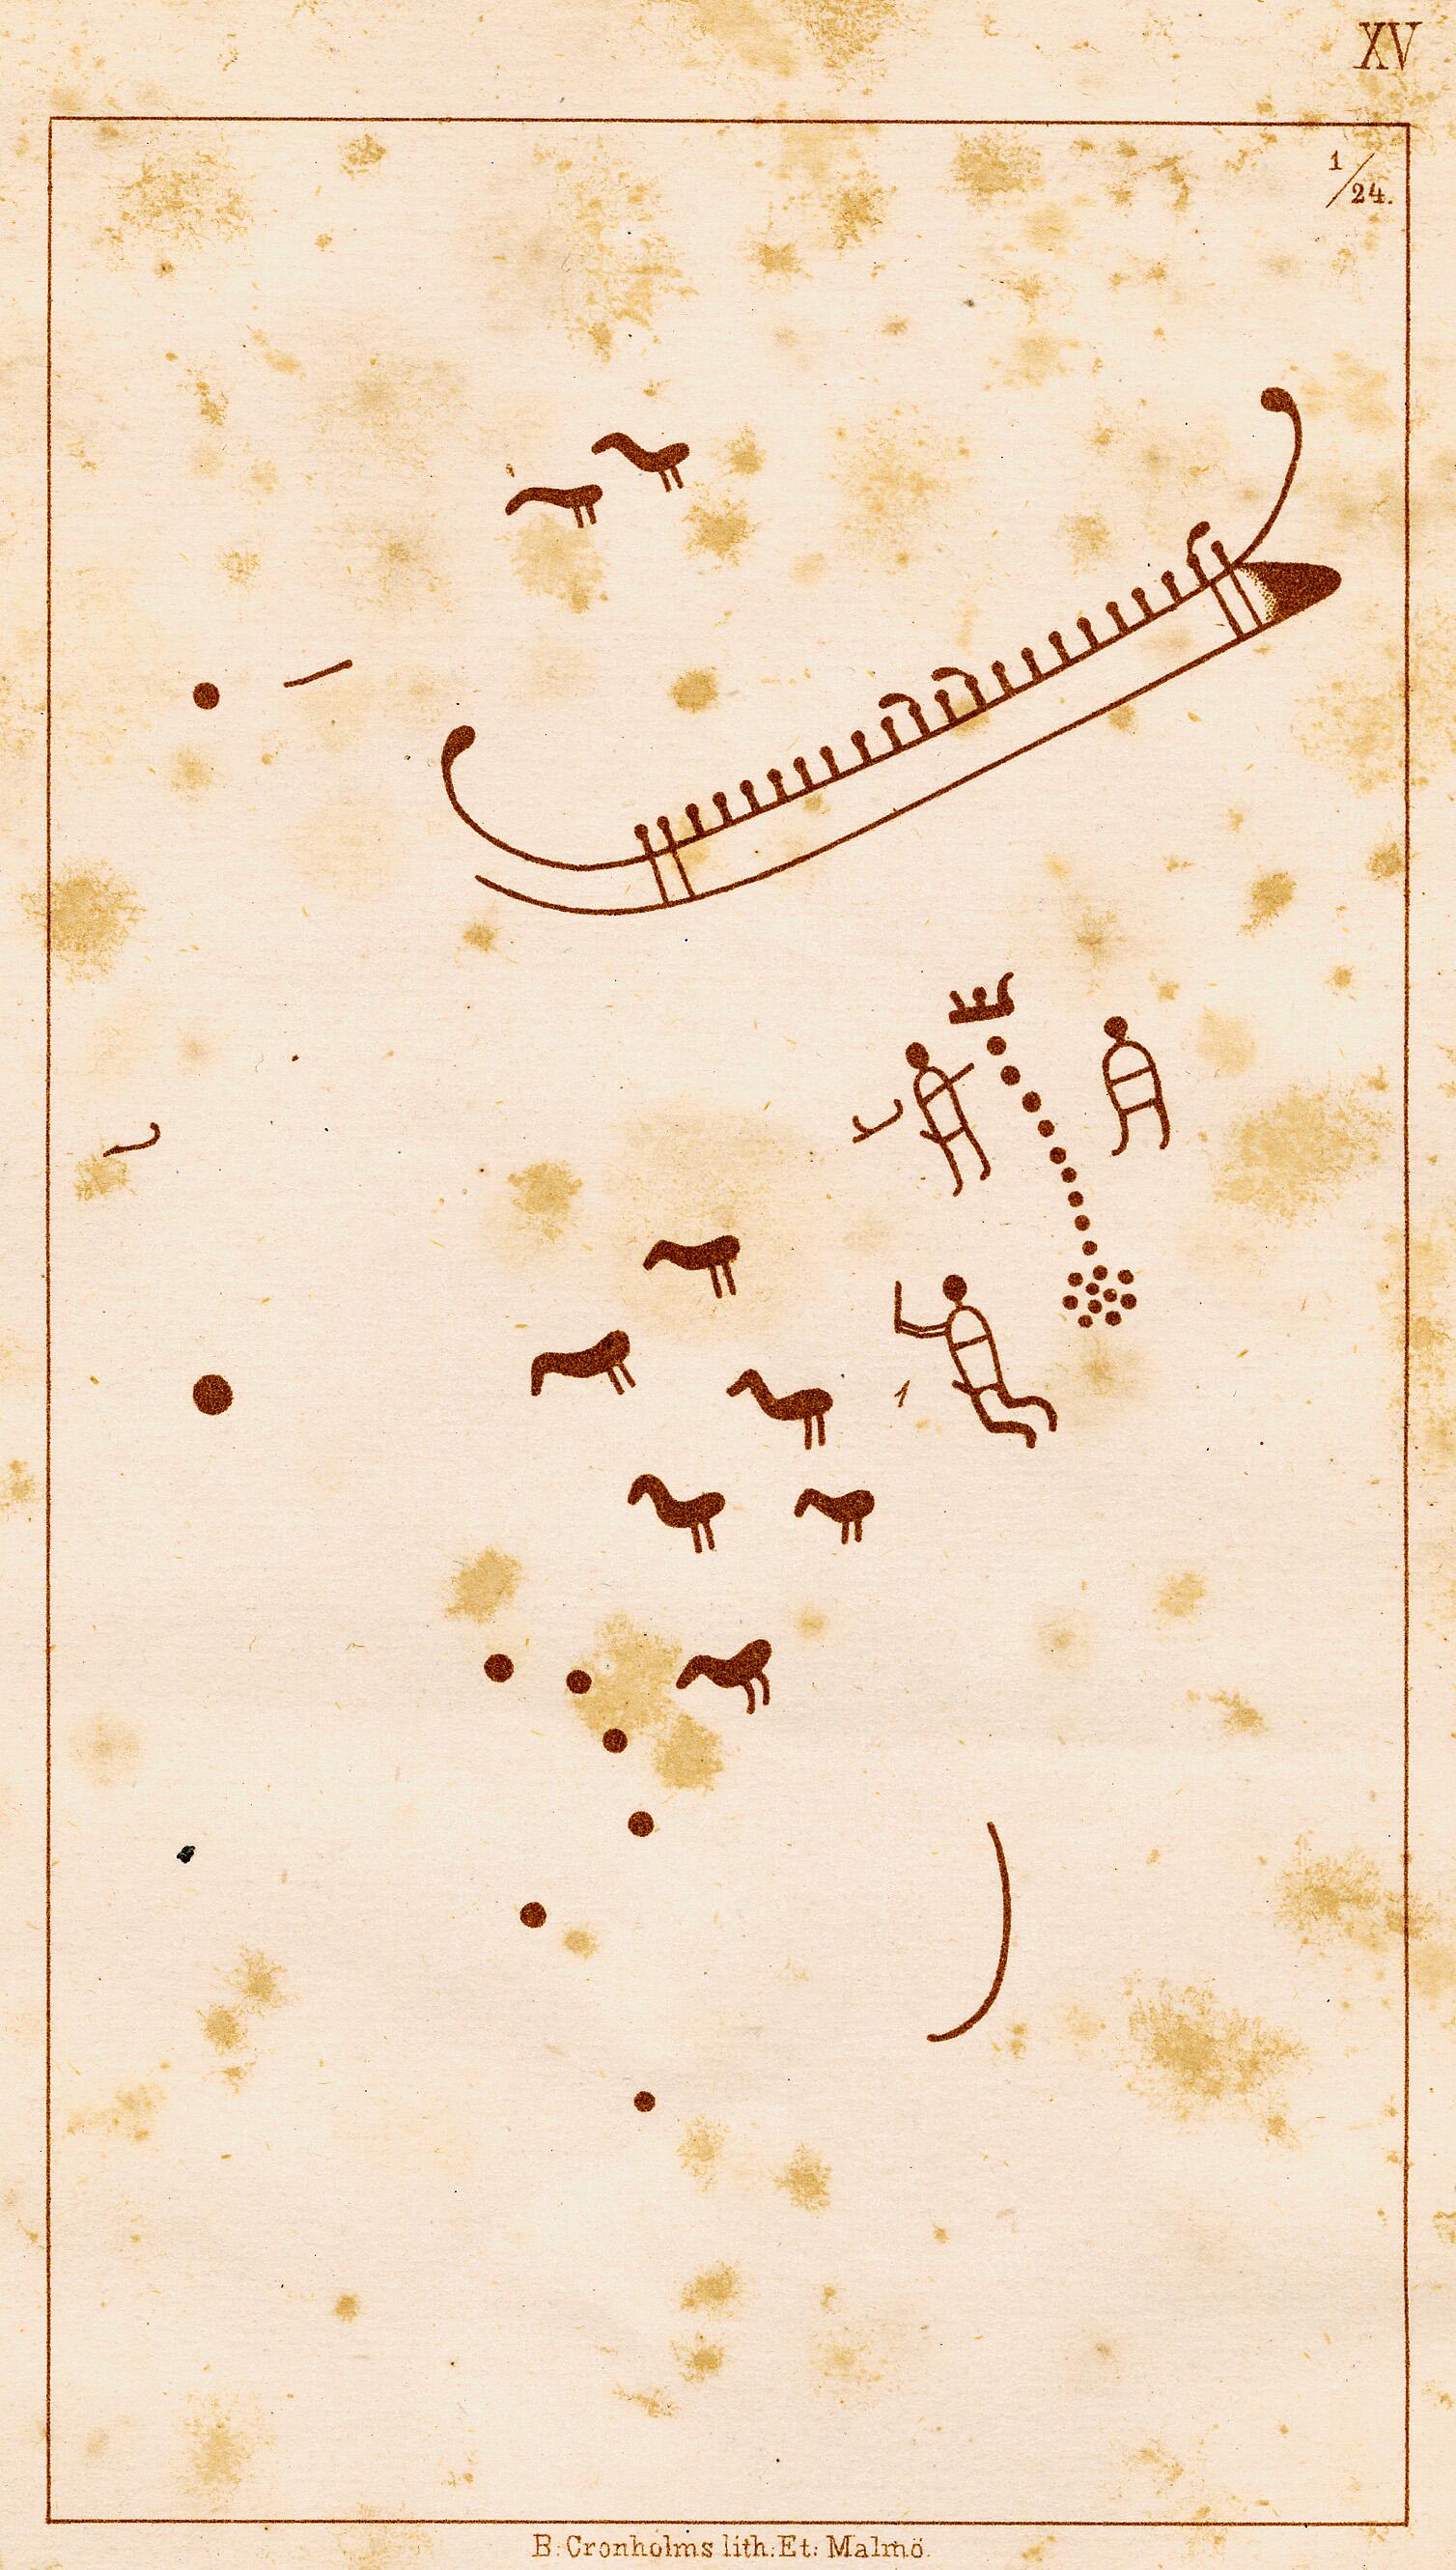 XV
1/24.
B. Cronholms lith: Et: Malmö.